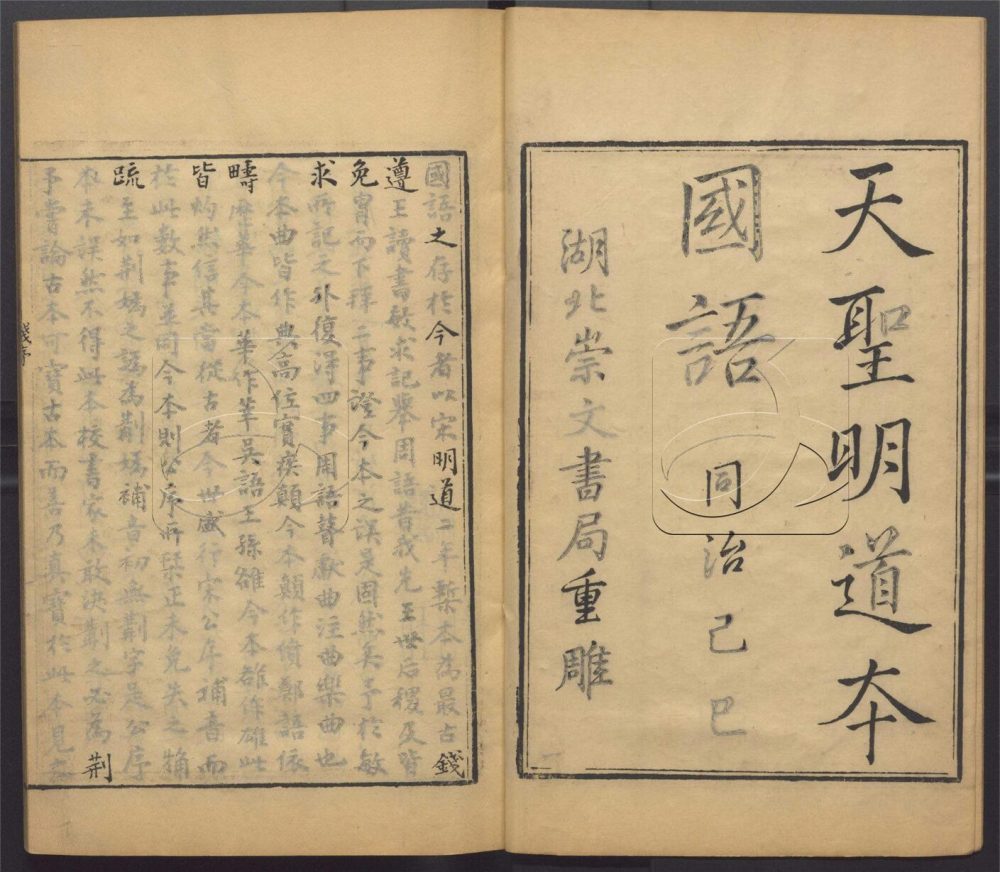 天聖明道本
國語
同治己巳
湖北崇文書局重雕
國語之存於今者以宋明道二年槧本為最古錢
遵王讀書敏求記舉周語昔我先王世后稷及皆
免胄而下拜二事證今本之誤是固然矣予於敏
求所記之外復得四事周語瞽獻曲注曲樂曲也
今本曲皆作典高位寔疾顛今本顛作僨鄭語依
疇歷華今本華作莘吳語王孫雒今本雒作雄此
皆灼然信其當從古者今世盛行宋公序補音而
於此數事並同今本則公序所栞正未免失之觕
疏至如荆媯之譌為荊媯補音初無荊字是公序
本未誤然不得此本校書家未敢決荊之必為荆
予嘗論古本可寶古本而善乃真寶於此本見之
錢序